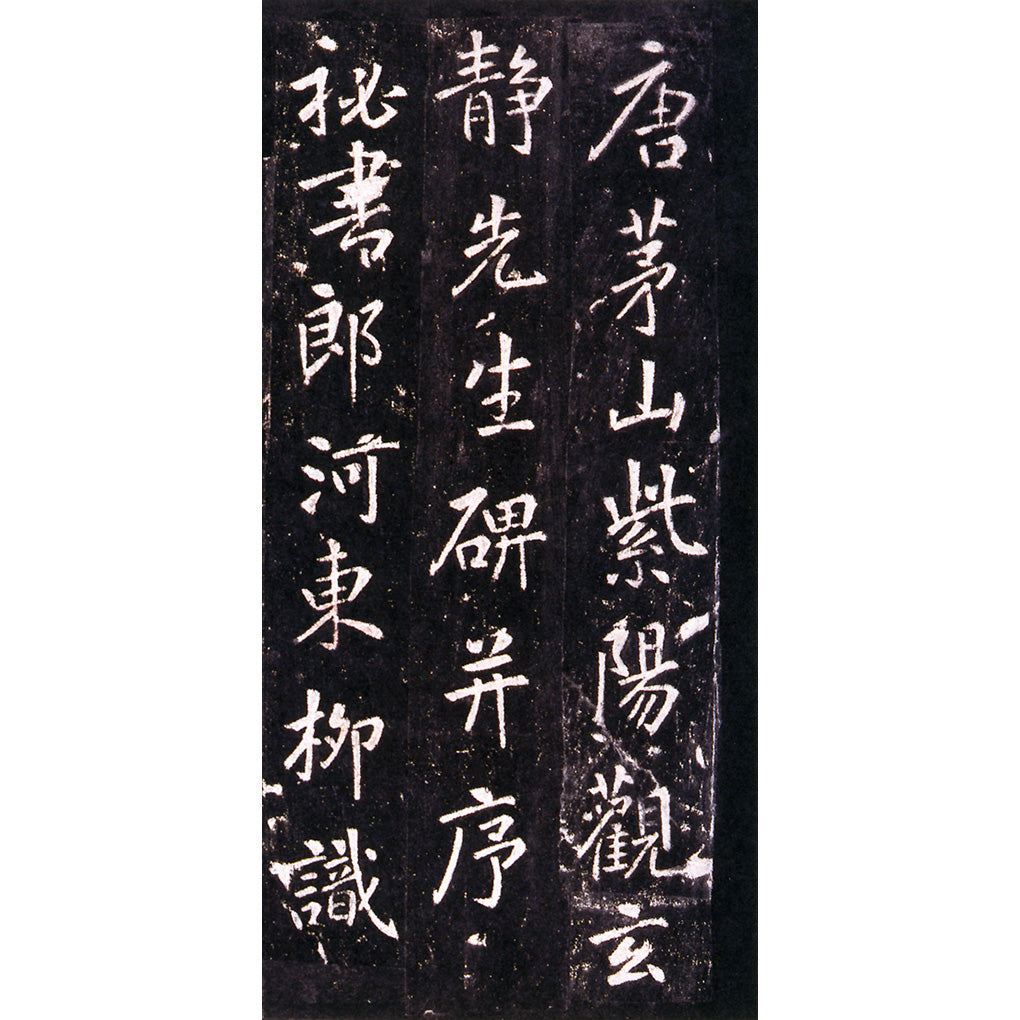 唐茅山紫陽觀玄
靜先生碑并序
祕書郎河東柳識